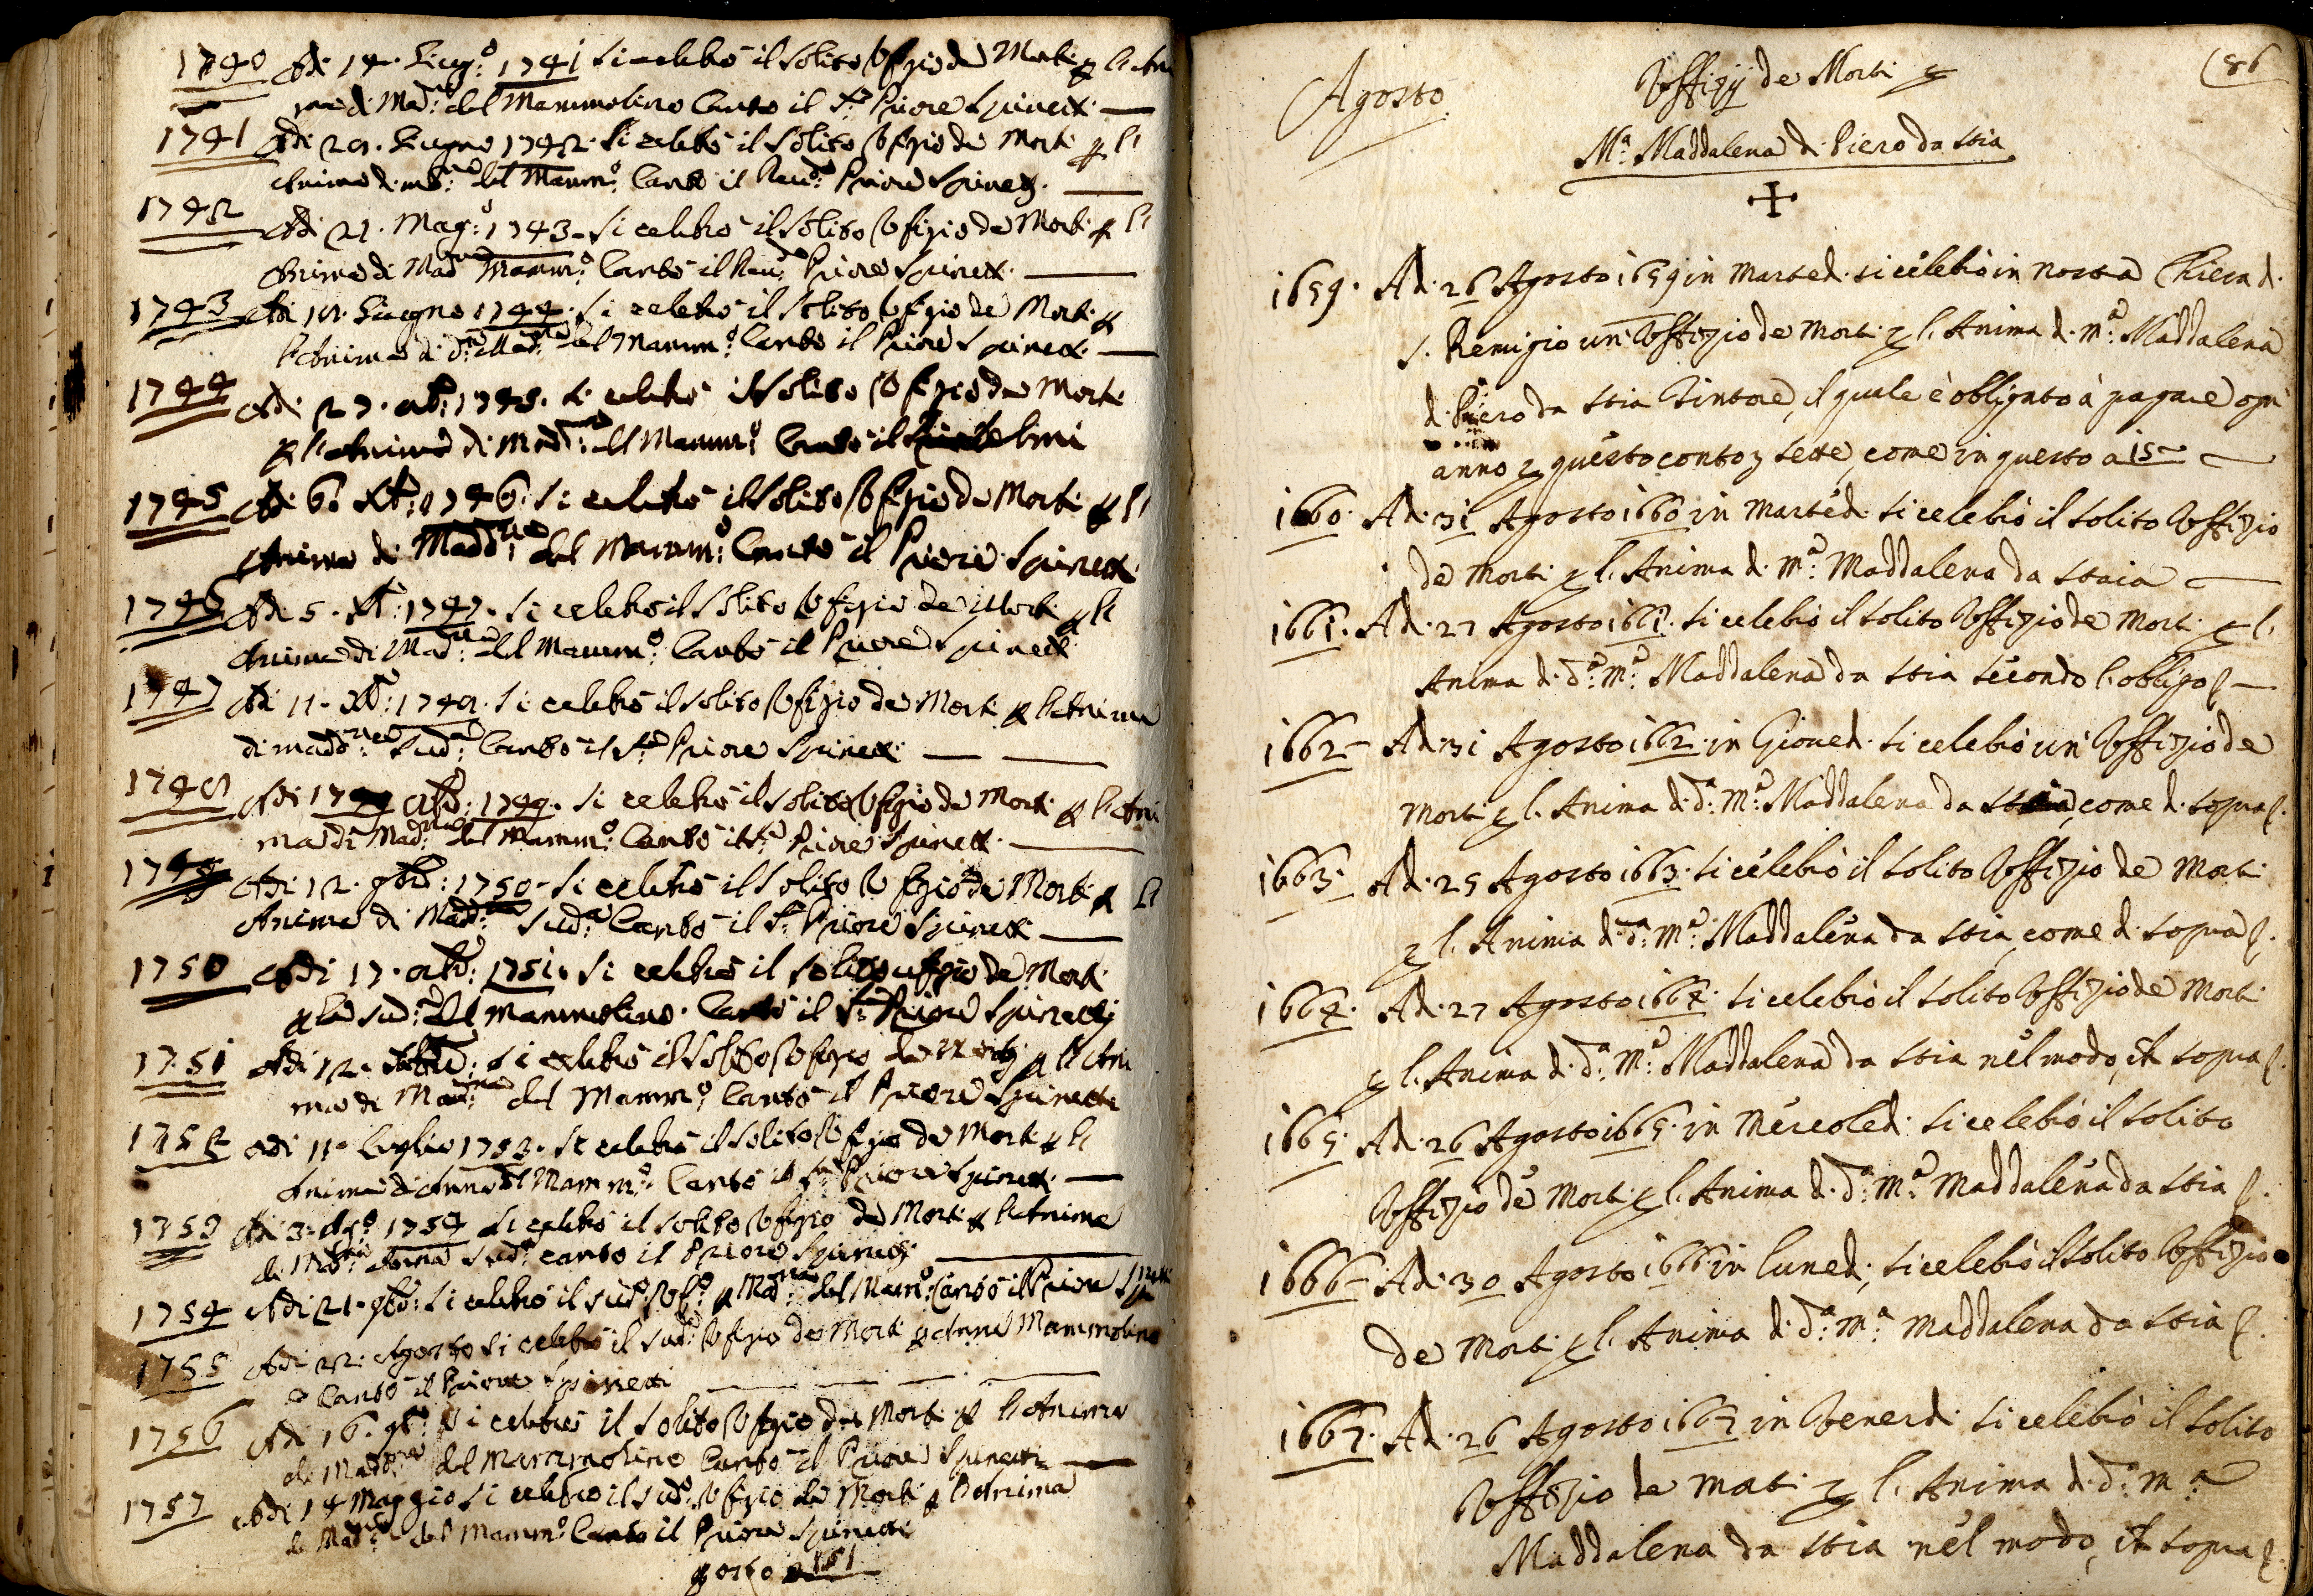 1740 Adi 14. Giug.º 1741 si celebrò il solito Vfizio de Morti p l'Ani
ma di Mad.na del Mammolino Cantò il S.r Priore Spinetti
1741 Adi 29. Giugno 1742. si celebrò il solito Vfizio de Morti p l'
Anima di Mad.na del Mamm.º Cantò il Reu.do Priore Spinetti
1742 Adi 21. Mag.º 1743 si celebrò il solito Vfizio de Morti p l'
Anima di Mad.na Mamm.º Cantò il Reu.do Priore Spinetti
1743 Adi Giugno 1744. si celebrò il solito Vfizio de Morti p
l'Anima di d.a Mad.na del Mamm.º Cantò il Priore Spinetti
1744 Adi 27. 1745. si celebrò il solito Vfizio de Morti
p l'Anima di Mad.na del Mamm.º Cantò il
1745 Adi 6. Xb: 1746. si celebrò il solito Vfizio de Morti p l'
Anima di Madd.na del Mamm.º Cantò il Priore Spinetti
1746 Adi 5. Xb: 1747. si celebrò il solito Vfizio de Morti p l'
Anima di Mad.na del Mamm.º Cantò il Priore Spinetti
1747 Adi 11. si celebrò il solito Vfizio de Morti p l'Anima
di Mad.na Sud.a Cantò il S.r Priore Spinetti
1748 Adi 1749. si celebrò il solito Vfizio de Morti p l'Ani
ma di Mad.na del Mamm.º Cantò il S.r Priore Spinetti
Adi 12. 9bre: 1750 si celebrò il solito Vfizio de Morti p l'
Anima di Mad.na Sud.a Cantò il S.r Priore Spinetti
1750 Adi 17. 1751. si celebrò il solito ufizio de Morti
p la sud.a del Mammolino. Cantò il S.r Priore Spinetti
1751 Adi 12. si celebrò il solito Vfizio de Morti p l'Ani
ma di Mad.na del Mamm.º Cantò il Priore Spinetti
1752 Adi 11 Luglio 1753. si celebrò il solito Vfizio de Morti p l'
Anima di Anna del Mamm.º Cantò il S.r Priore Spinetti
1753 Adi 3. Ag.º 1754 si celebrò il solito Vfizio de Morti p l'Anima
di Mad.na Anna Sud.a cantò il Priore Spinetti
1754 Adi 21. 9bre: si celebrò il sud.º Vf.º p Mad.na del Mam.º Cantò il Priore
1755 Adi 22. Agosto si celebrò il sud.º Vfizio de Morti p Anna Mammolino
e Cantò il Priore Spinetti
1756 Adi 16. 9bre: si celebrò il solito Vfizio de Morti p l'Anima
di Mad.na del Mammolino Cantò il Priore Spinetti
1757 Adi 14 Maggio si celebrò il sud.º Vfizio de Morti p l'Anima
di Mad.na del Mamm.º Cantò il Priore Spinetti
151
Agosto
Vffizij de Morti p
86
M.ª Maddalena di Piero da Stia
1659. Adi 26 Agosto 1659 in Marted. si celebrò in nostra Chiesa di
S. Remigio un' Vffizio de Morti p l. Anima di M.ª Maddalena
di Piero da Stia Tintore, il quale è obligato à pagare ogn'
anno p questo conto sette, come in questo a 15
1660. Adi 31 Agosto 1660 in Marted. si celebrò il solito Vffizio
de Morti p l. Anima di M.ª Maddalena da Staia
1661. Adi 27 Agosto 1661. si celebrò il solito Vffizio de Morti p l.
Anima di d.ª M.ª Maddalena da Stia secondo l. obligo
1662 Adi 31 Agosto 1662 in Gioued. si celebrò un' Vffizio de
Morti p l. Anima di d.ª M.ª Maddalena da Stia, come di sopra
1663. Adi 25 Agosto 1663. si celebrò il solito Vffizio de Morti
p l. Anima di d.ª M.ª Maddalena da Stia, come di sopra
1664. Adi 27 Agosto 1664. si celebrò il solito Vffizio de Morti
p l. Anima di d.ª M.ª Maddalena da Stia nel modo, di sopra
1665. Adi 26 Agosto 1665. in Mercoled. si celebrò il solito
Vffizio de Morti p l. Anima di d.ª M.ª Maddalena da Stia
1666 Adi 30 Agosto 1666 in Luned. si celebrò il solito Vffizio
de Morti p l. Anima di d.ª M.ª Maddalena da Stia
1667. Adi 26 Agosto 1667 in Venerdi si celebrò il solito
Vffizio de Morti p l. Anima di d.ª M.ª
Maddalena da Stia nel modo, di sopra